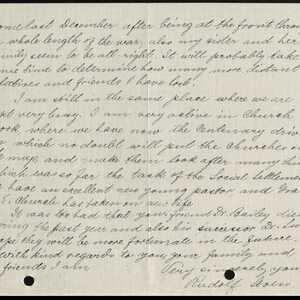 ome last December after being at the front throu
whole length of the war, also my sister and her
mily seem to be all right. It will probably take
me time to determine how many more distant
latives and friends I have lost.
I am still in the same place where we are
ept very busy. I am very active in Church
ork where we have now the Centenary driv
which no doubt will put the Churches on
e map, and make them look after many thin
hich was so far the task of the Social Settlem
have an excellent new young pastor, and
E. Church has taken on new life
It was too bad that your friend Dr. Bailey di
ring the past year and also his sucessor Dr.
ope they will be more fortunate in the future
with kind regards to you, your family and
friends I am
Very sincerely you
Rudolf